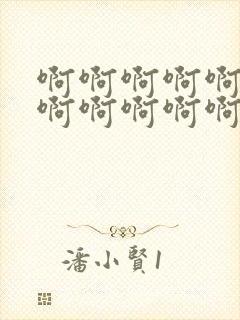 啊啊啊啊啊
啊啊啊啊啊
潘小賢1